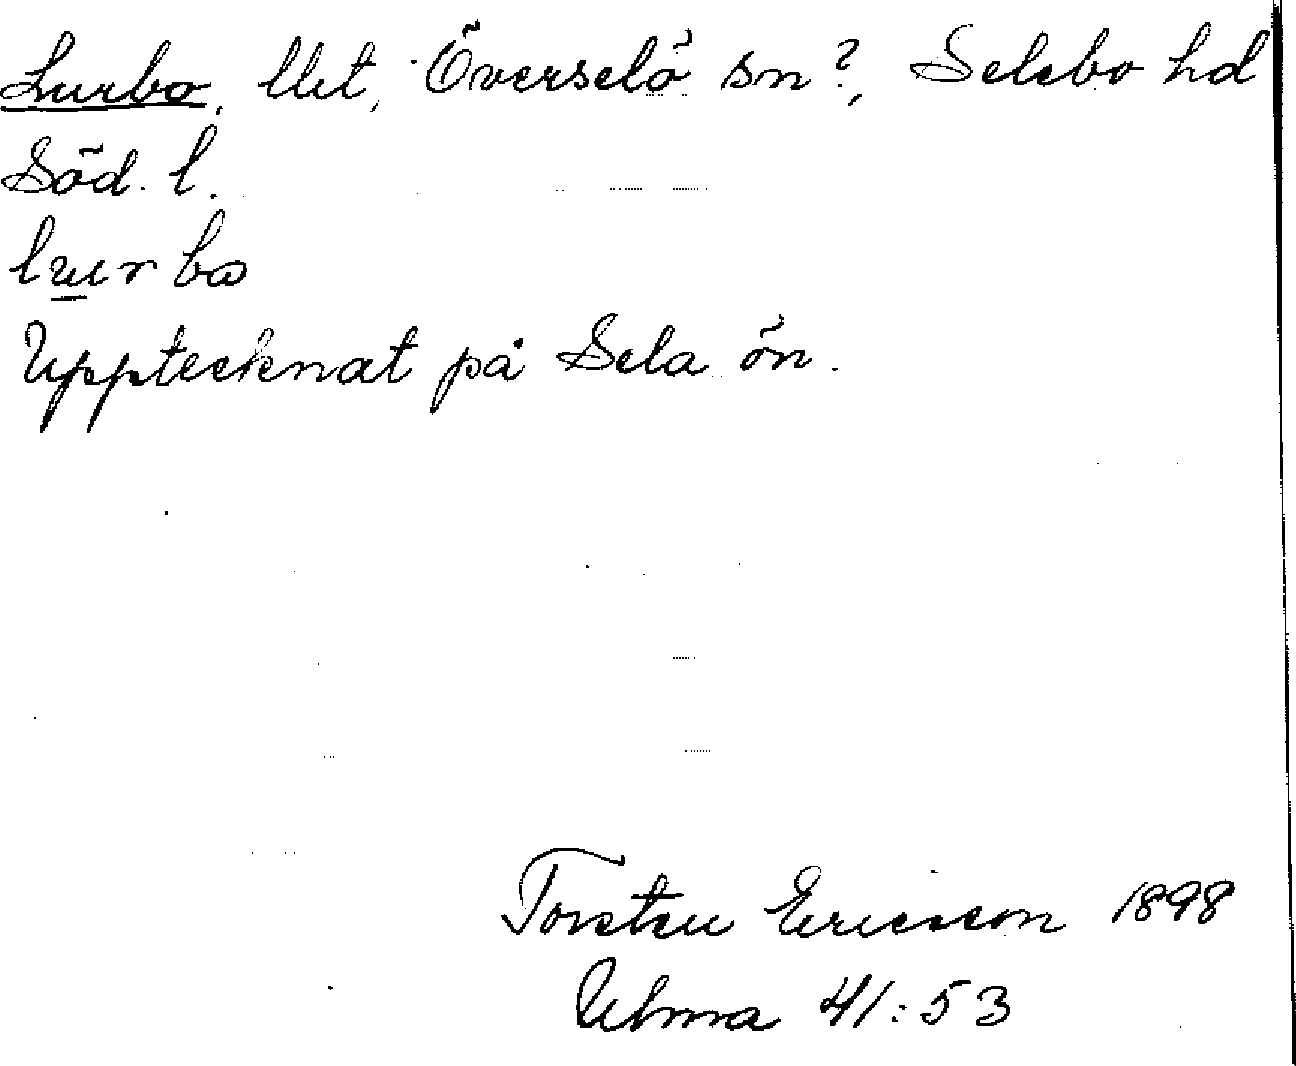 Lurbo, llet, Överselö sn?, Selebo hd
Söd. l.
Upptecknat på Sela ön.
Torsten Ericsson 1898
Ulma 41:53